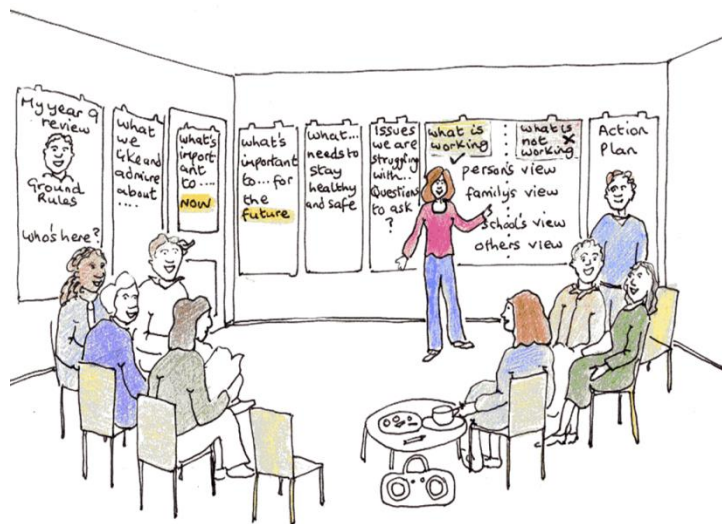 My year 9
review
Ground
Rules
Who's here?
what
we
like and
admire
about
....
what's
import
ant
to ....
NOW
what's
important
to... for
the
future
What...
needs to
stay
healthy
and safe
Issues
we are
struggling
with...
Questions
to ask
?
what is
working
what is
not
working
person's view
family's view
school's view
others view
Action
Plan